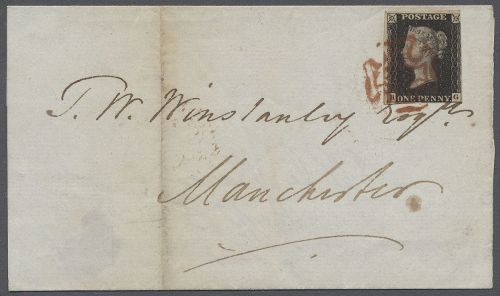 POSTAGE
G
ONE PENNY
T. W. Winstanley Esqre
Manchester